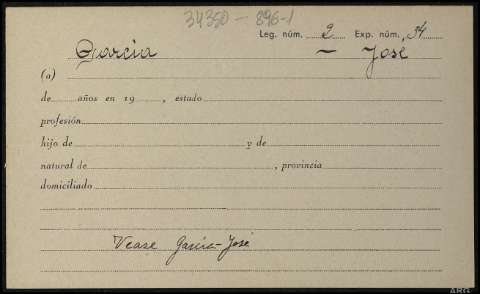 34350 - 896-1
Leg. núm. 2 Exp. núm. 34
Garcia - José
(a)
de años en 19 , estado
profesión
hijo de y de
natural de , provincia
domiciliado
Vease Garcia - José